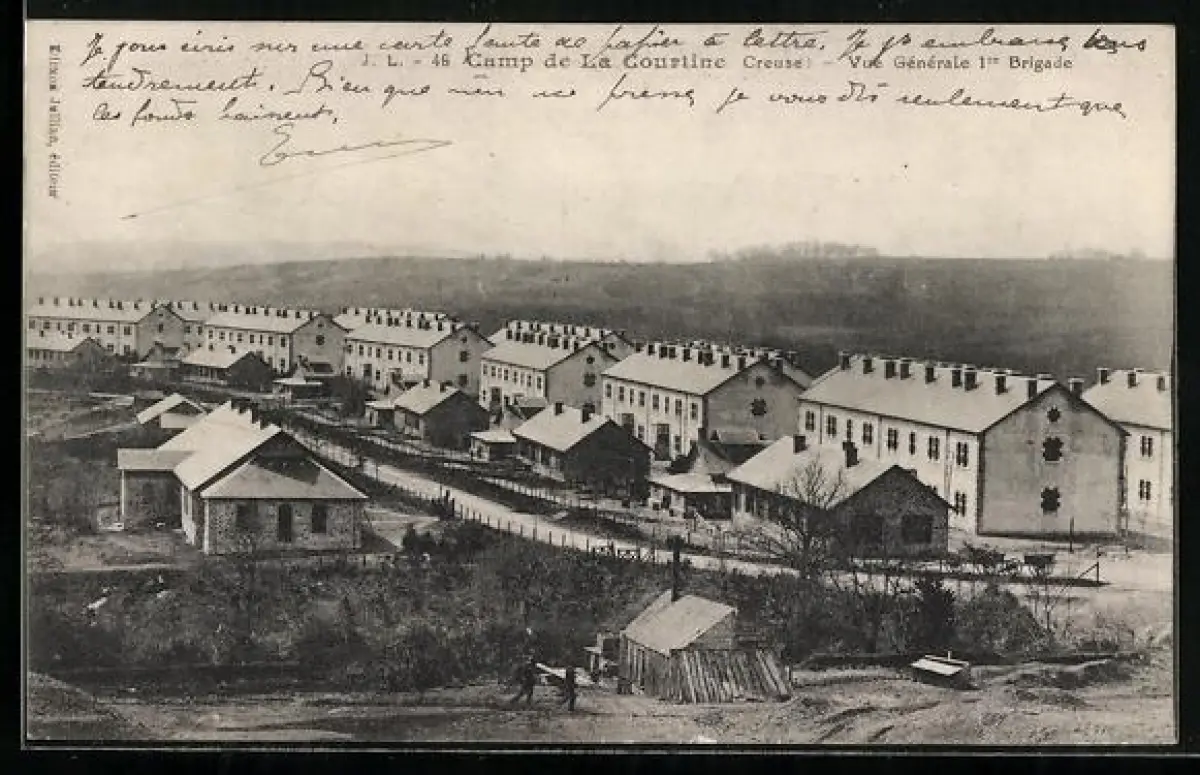 Je vous écris sur une carte faute de papier à lettre. Je vs embrasse tous
J. L. - 46 Camp de La Courtine (Creuse) - Vue Générale 1re Brigade
tendrement. Bien que rien ne presse je vous dis seulement que
les fonds baissent.
Editeur